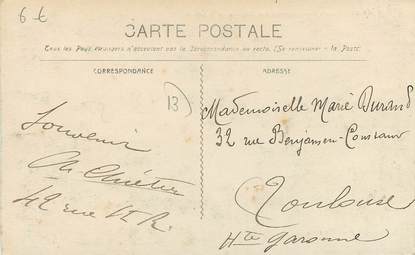 6 €
CARTE POSTALE
Tous les Pays étrangers n'acceptent pas la Correspondance au recto. (Se renseigner à la Poste.
CORRESPONDANCE
ADRESSE
13
Souvenir
42 rue
Mademoiselle Marie Durand
32 rue Benjamin-Constant
Toulouse
Hte Garonne